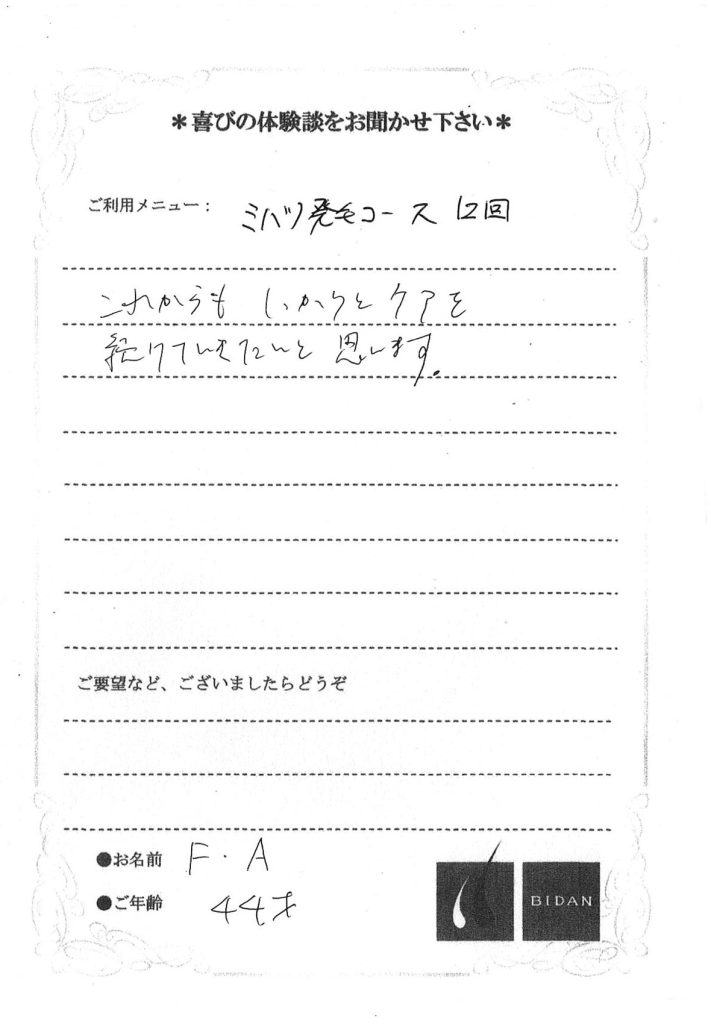 ＊喜びの体験談をお聞かせ下さい＊
ご利用メニュー： ミハツ発毛コース 12回
これからも しっかりと ケアを
続けていきたいと 思います。
ご要望など、ございましたらどうぞ
●お名前 F．A
●ご年齢 44才
BIDAN